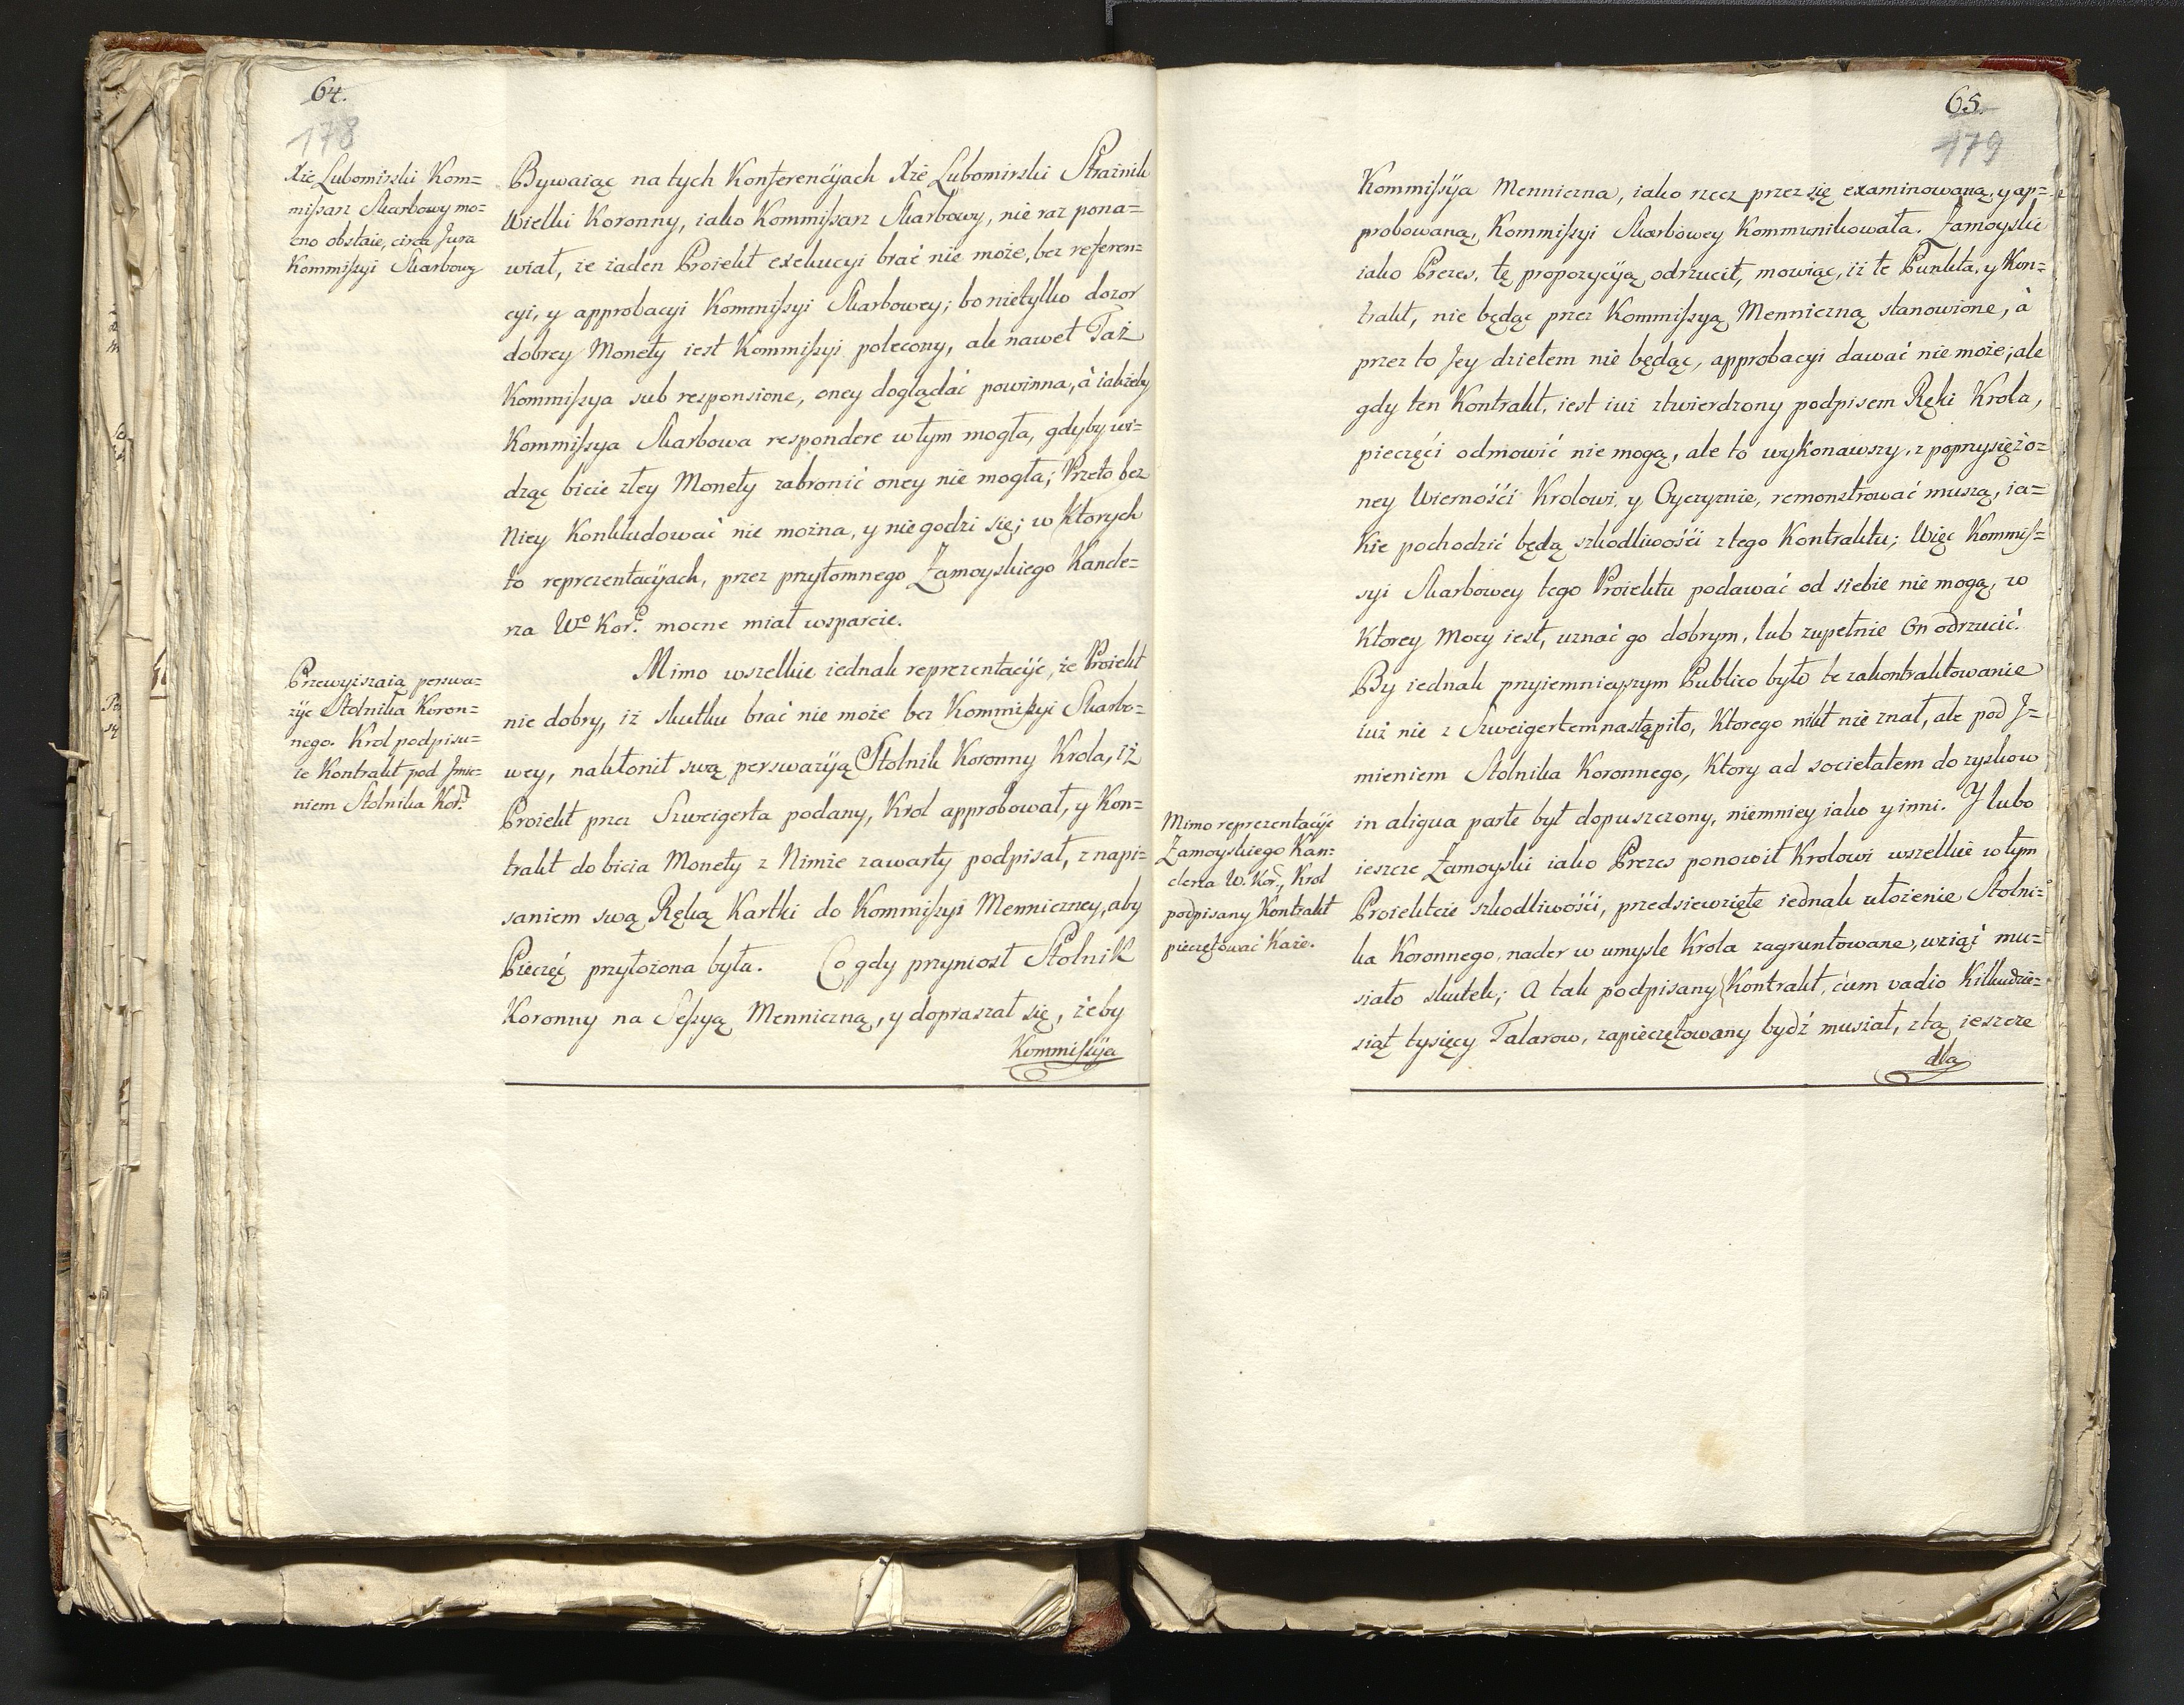 64.
178
Xże Lubomirski Kom=
missarz Skarbowy mo=
cno obstaie, circa Jura
Kommissyi Skarbowy
Bywaiąc na tych Konferencyjach Xże Lubomirski Strażnik
Wielki Koronny, iako Kommissarz Skarbowy, nie raz pona=
wiał, że żaden Proiekt exekucyi brać nie może, bez referen=
cyi, y approbacyi Kommissyi Skarbowey; bo nietylko dozor
dobrey Monety iest Kommissyi polecony, ale nawet Taż
Kommissya sub responsione, oney doglądać powinna, à iakżeby
Kommissya Skarbowa respondere w tym mogła, gdyby wi=
dząc bicie złey Monety zabronić oney nie mogła; Przeto bez
Niey Konkludować nie można, y nie godzi się; w Ktorych
to reprezentacyjach, przez przytomnego Zamoyskiego Kancle=
rza Wo Kor: mocne miał wsparcie.
Przewyższaią perswa=
zye Stolnika Koron=
nego. Krol podpisu=
ie Kontrakt pod Jmie=
niem Stolnika Kor:
Mimo wszelkie iednak reprezentacyje, że Proiekt
nie dobry, iż skutku brać nie może bez Kommissyi Skarbo=
wey, nakłonił swą perswazyją Stolnik Koronny Krola, iż
Proiekt przez Szweigerta podany, Krol approbował, y Kon=
trakt do bicia Monety z Nimże zawarty podpisał, z napi=
saniem swą Ręką Kartki do Kommissyi Menniczney, aby
Pieczęć przyłożona była. Co gdy przyniosł Stolnik
Koronny na Sessyą Menniczną, y dopraszał się, żeby
Kommissyja
65.
179
Kommissyja Mennicza, iako rzecz przez się examinowaną, y ap=
probowaną, Kommissyi Skarbowey Kommunikowała. Zamoyski
iako Prezes, tę propozycyją odrzucił, mowiąc, iż te Punkta, y Kon=
trakt, nie będąc przez Kommissyą Menniczną stanowione, à
przez to Jey dziełem nie będąc, approbacyi dawać nie może; ale
gdy ten Kontrakt, iest iuż ztwierdzony podpisem Ręki Krola,
pieczęći odmowić nie mogą, ale to wykonawszy, z poprzysiężo=
ney Wiernośći Krolowi, y Oyczyznie, remonstrować muszą, ia=
Kie pochodzić będą szkodliwośći z tego Kontraktu; Więc Kommis=
syi Skarbowey tego Proiektu podawać od siebie nie mogą, w
Ktorey Mocy iest, uznać go dobrym, lub zupełnie On odrzucić.
By iednak przyiemnieyszym Publico było te zakontraktowanie
iuż nie z Szweigertem nastąpiło, Ktorego nikt nie znał, ale pod J=
mieniem Stolnika Koronnego, Ktory ad societatem do zyskow
in aliqua parte był dopuszczony, niemniey iako y inni. Y lubo
ieszcze Zamoyski iako Prezes ponowił Krolowi wszelkie w tym
Proiektcie szkodliwośći, przedsiewzięte iednak ułożenie Stolni=
ka Koronnego, nader w umysle Krola zagruntowane, wziąć mu=
siało skutek; A tak podpisany Kontrakt, cum vadio Kilkudzie=
siąt tysięcy Talarow, zapieczętowany bydź musiał, z tą ieszcze
dla
Mimo reprezentacyje
Zamoyskiego Kan=
clerza W. Kor:, Krol
podpisany Kontrakt
pieczętować Każe.